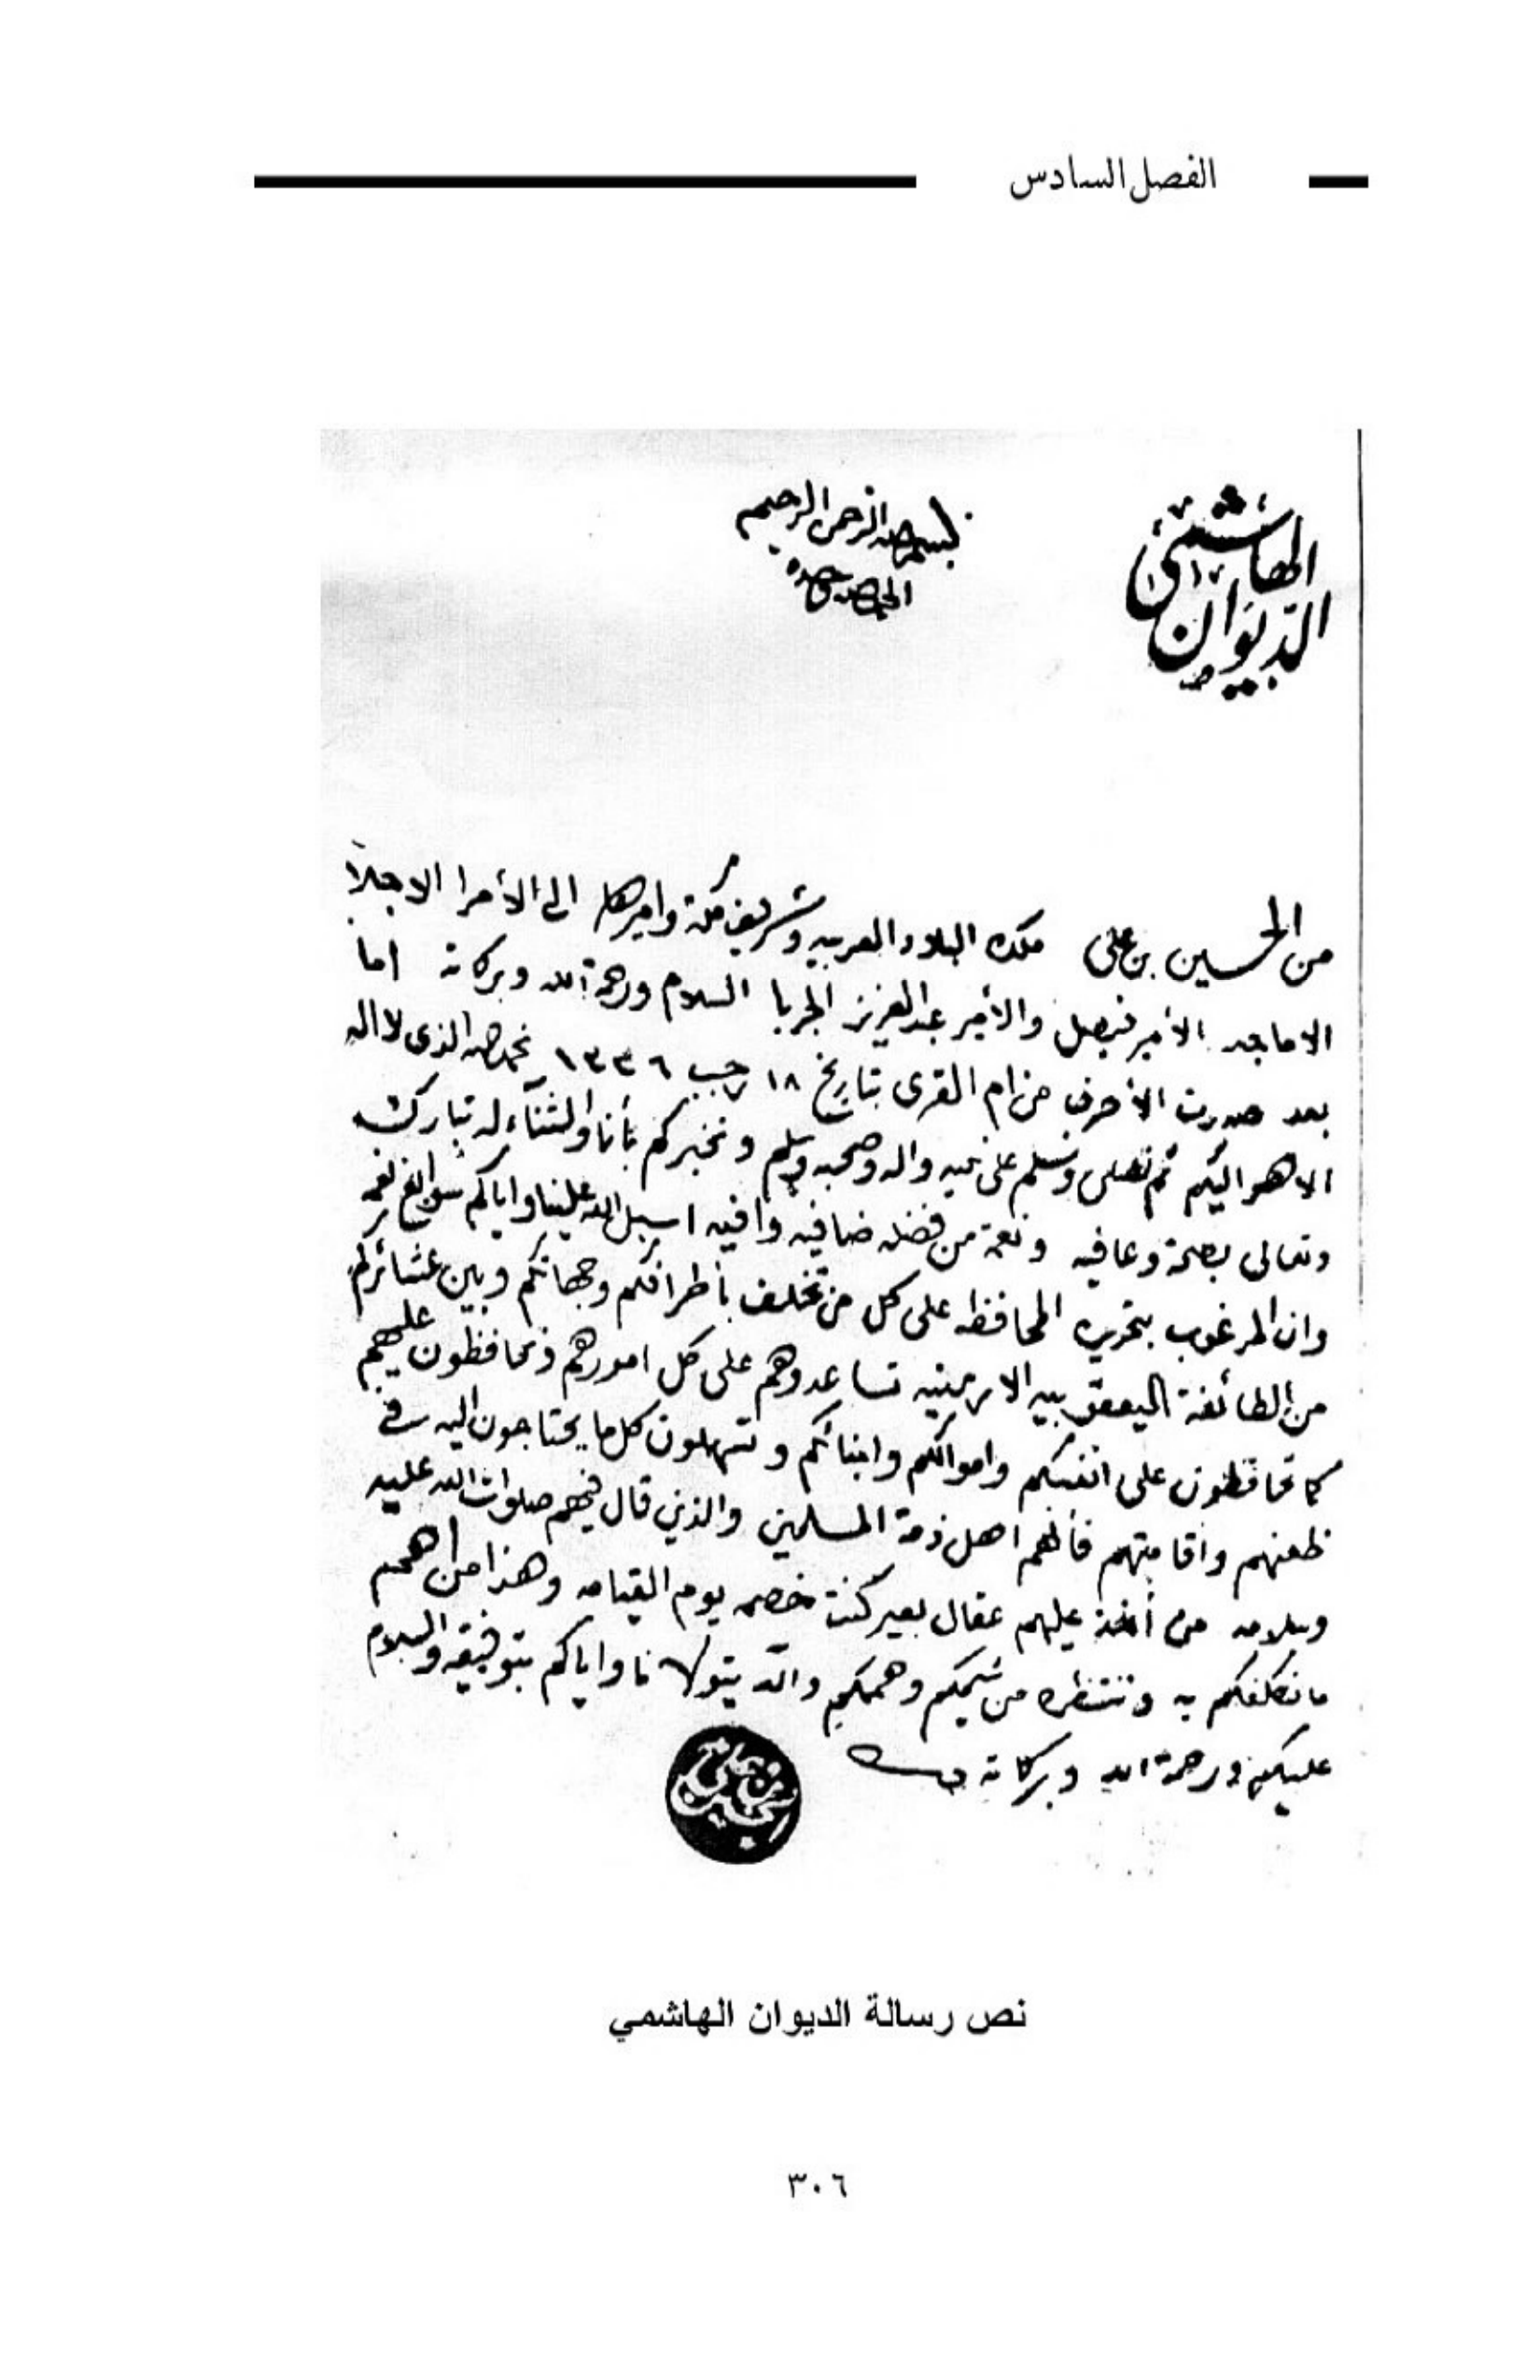 الفصل السادس
بسم الله الرحمن الرحيم
الحمد لله وحده
الديوان الهاشمي
من الحسين بن علي ملك البلاد العربيه وشريف مكة واميرها الى الأمرا الاجلا
الاماجد الأمير فيصل والأمير عبدالعزيز الجربا السلام ورحمة الله وبركاته اما
بعد صدرت الأحرف من ام القرى بتاريخ ١٨ رجب ١٣٣٦ نحمد الله الذى لا اله
الا هو اليكم ثم نصلى ونسلم على نبيه واله وصحبه وسلم ونخبركم بأنا والثنآء له تبارك
وتعالى بصحة وعافيه ونعمة من فضله ضافيه وافيه اسبل الله علينا واياكم سوابغ نعمه
وان المرغوب بتحريره المحافظه على كل من تخلف بأطرافكم وجهاتكم وبين عشائركم
من الطائفة اليعقوبيه الارمنيه تساعدوهم على كل امورهم وتحافظون عليهم
كما تحافظون على انفسكم واموالكم وابنائكم وتسهلون كل ما يحتاجون اليه في
ظعنهم واقامتهم فأنهم اهل ذمة المسلمين والذين قال فيهم صلوات الله عليه
وسلامه من أخذ عليهم عقال بعير كنت خصمه يوم القيامه وهذا من أهم
مانكلفكم به وننتظره من شيمكم وهممكم والله يتولانا واياكم بتوفيقه والسلام
عليكم ورحمة الله وبركاته
الحسين بن علي
نص رسالة الديوان الهاشمي
٣٠٦